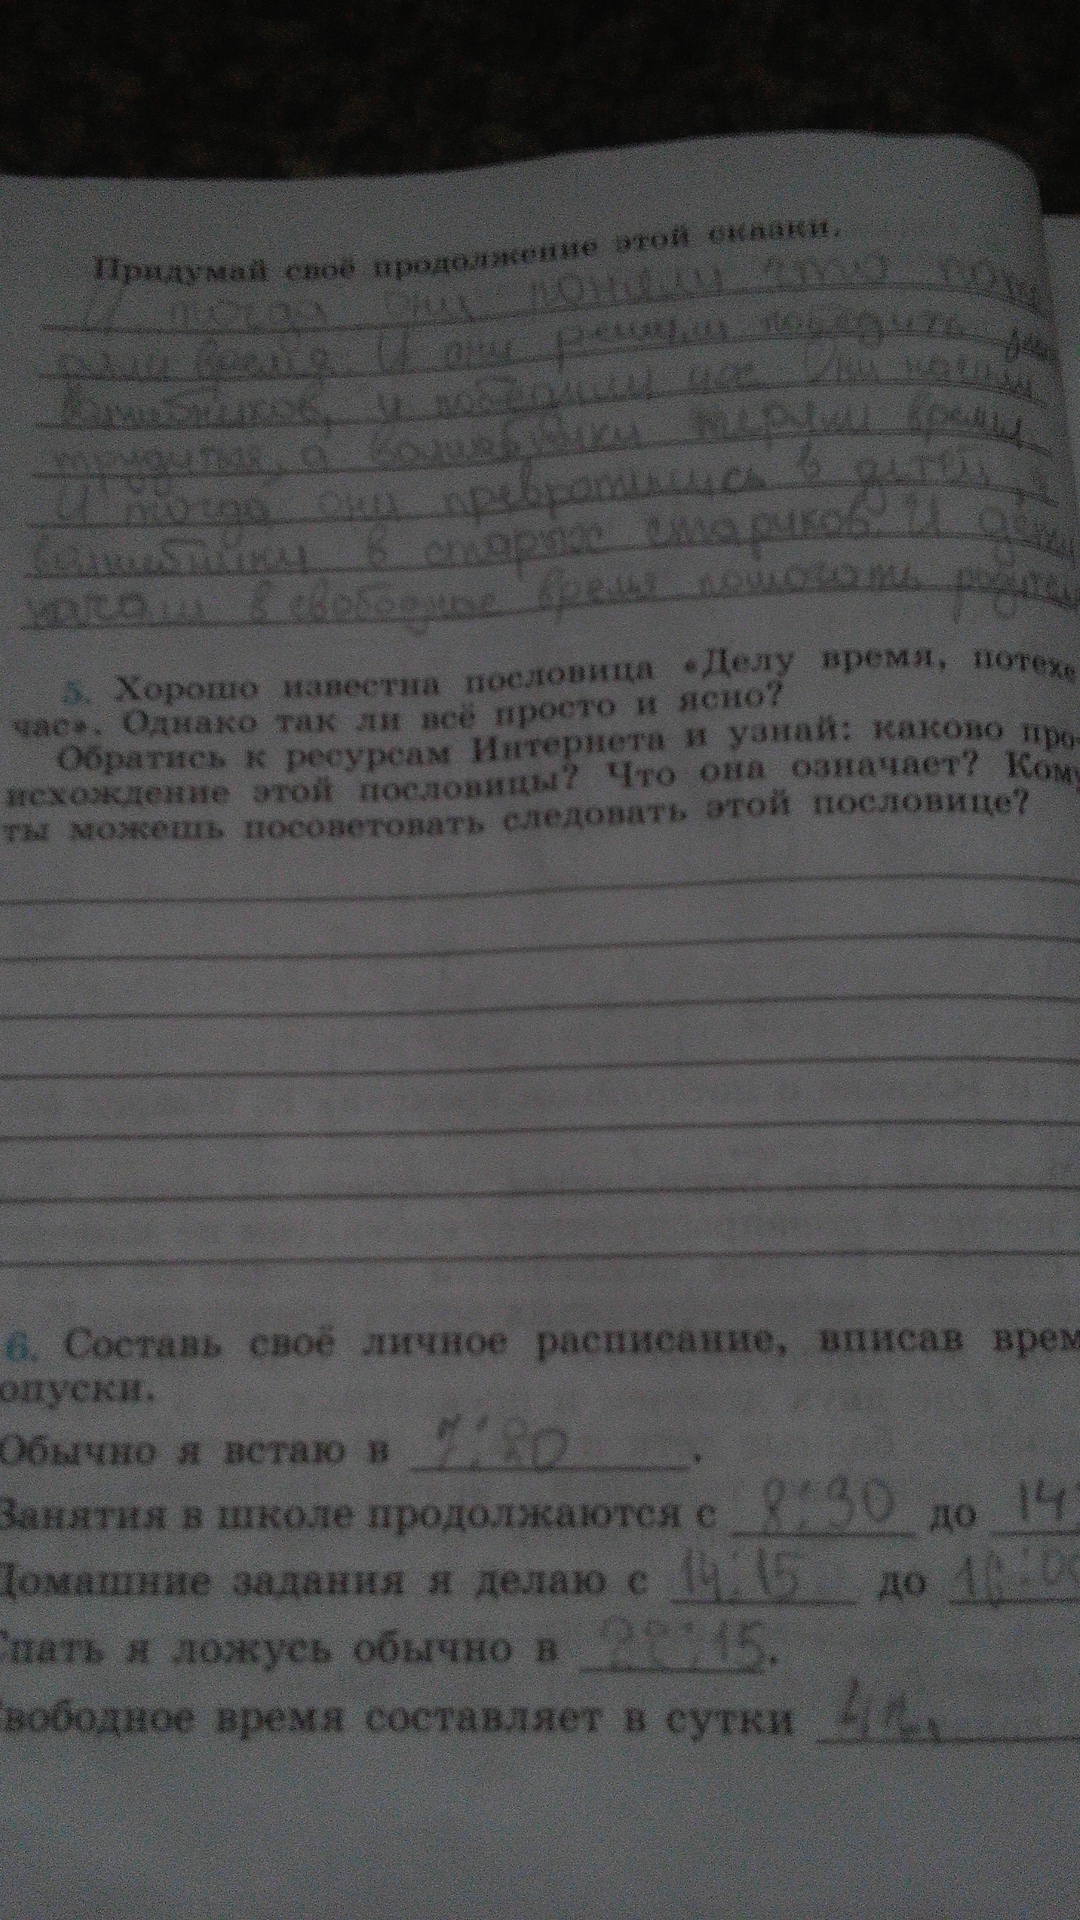 Придумай своё продолжение этой сказки.
И тогда они поняли что поте
ряли время. И они решили победить
волшебников, и победили их. Они начали
трудиться, а волшебники теряли время
И тогда они превратились в детей, а
волшебники в старых стариков. И дети
начали в свободное время помогать родител
5. Хорошо известна пословица «Делу время, потехе
час». Однако так ли всё просто и ясно?
Обратись к ресурсам Интернета и узнай: каково про-
исхождение этой пословицы? Что она означает? Кому
ты можешь посоветовать следовать этой пословице?
6. Составь своё личное расписание, вписав врем
опуски.
Обычно я встаю в 7:20.
Занятия в школе продолжаются с 8:30 до 14:
Домашние задания я делаю с 14:15 до 16:00
Спать я ложусь обычно в :15.
вободное время составляет в сутки 4